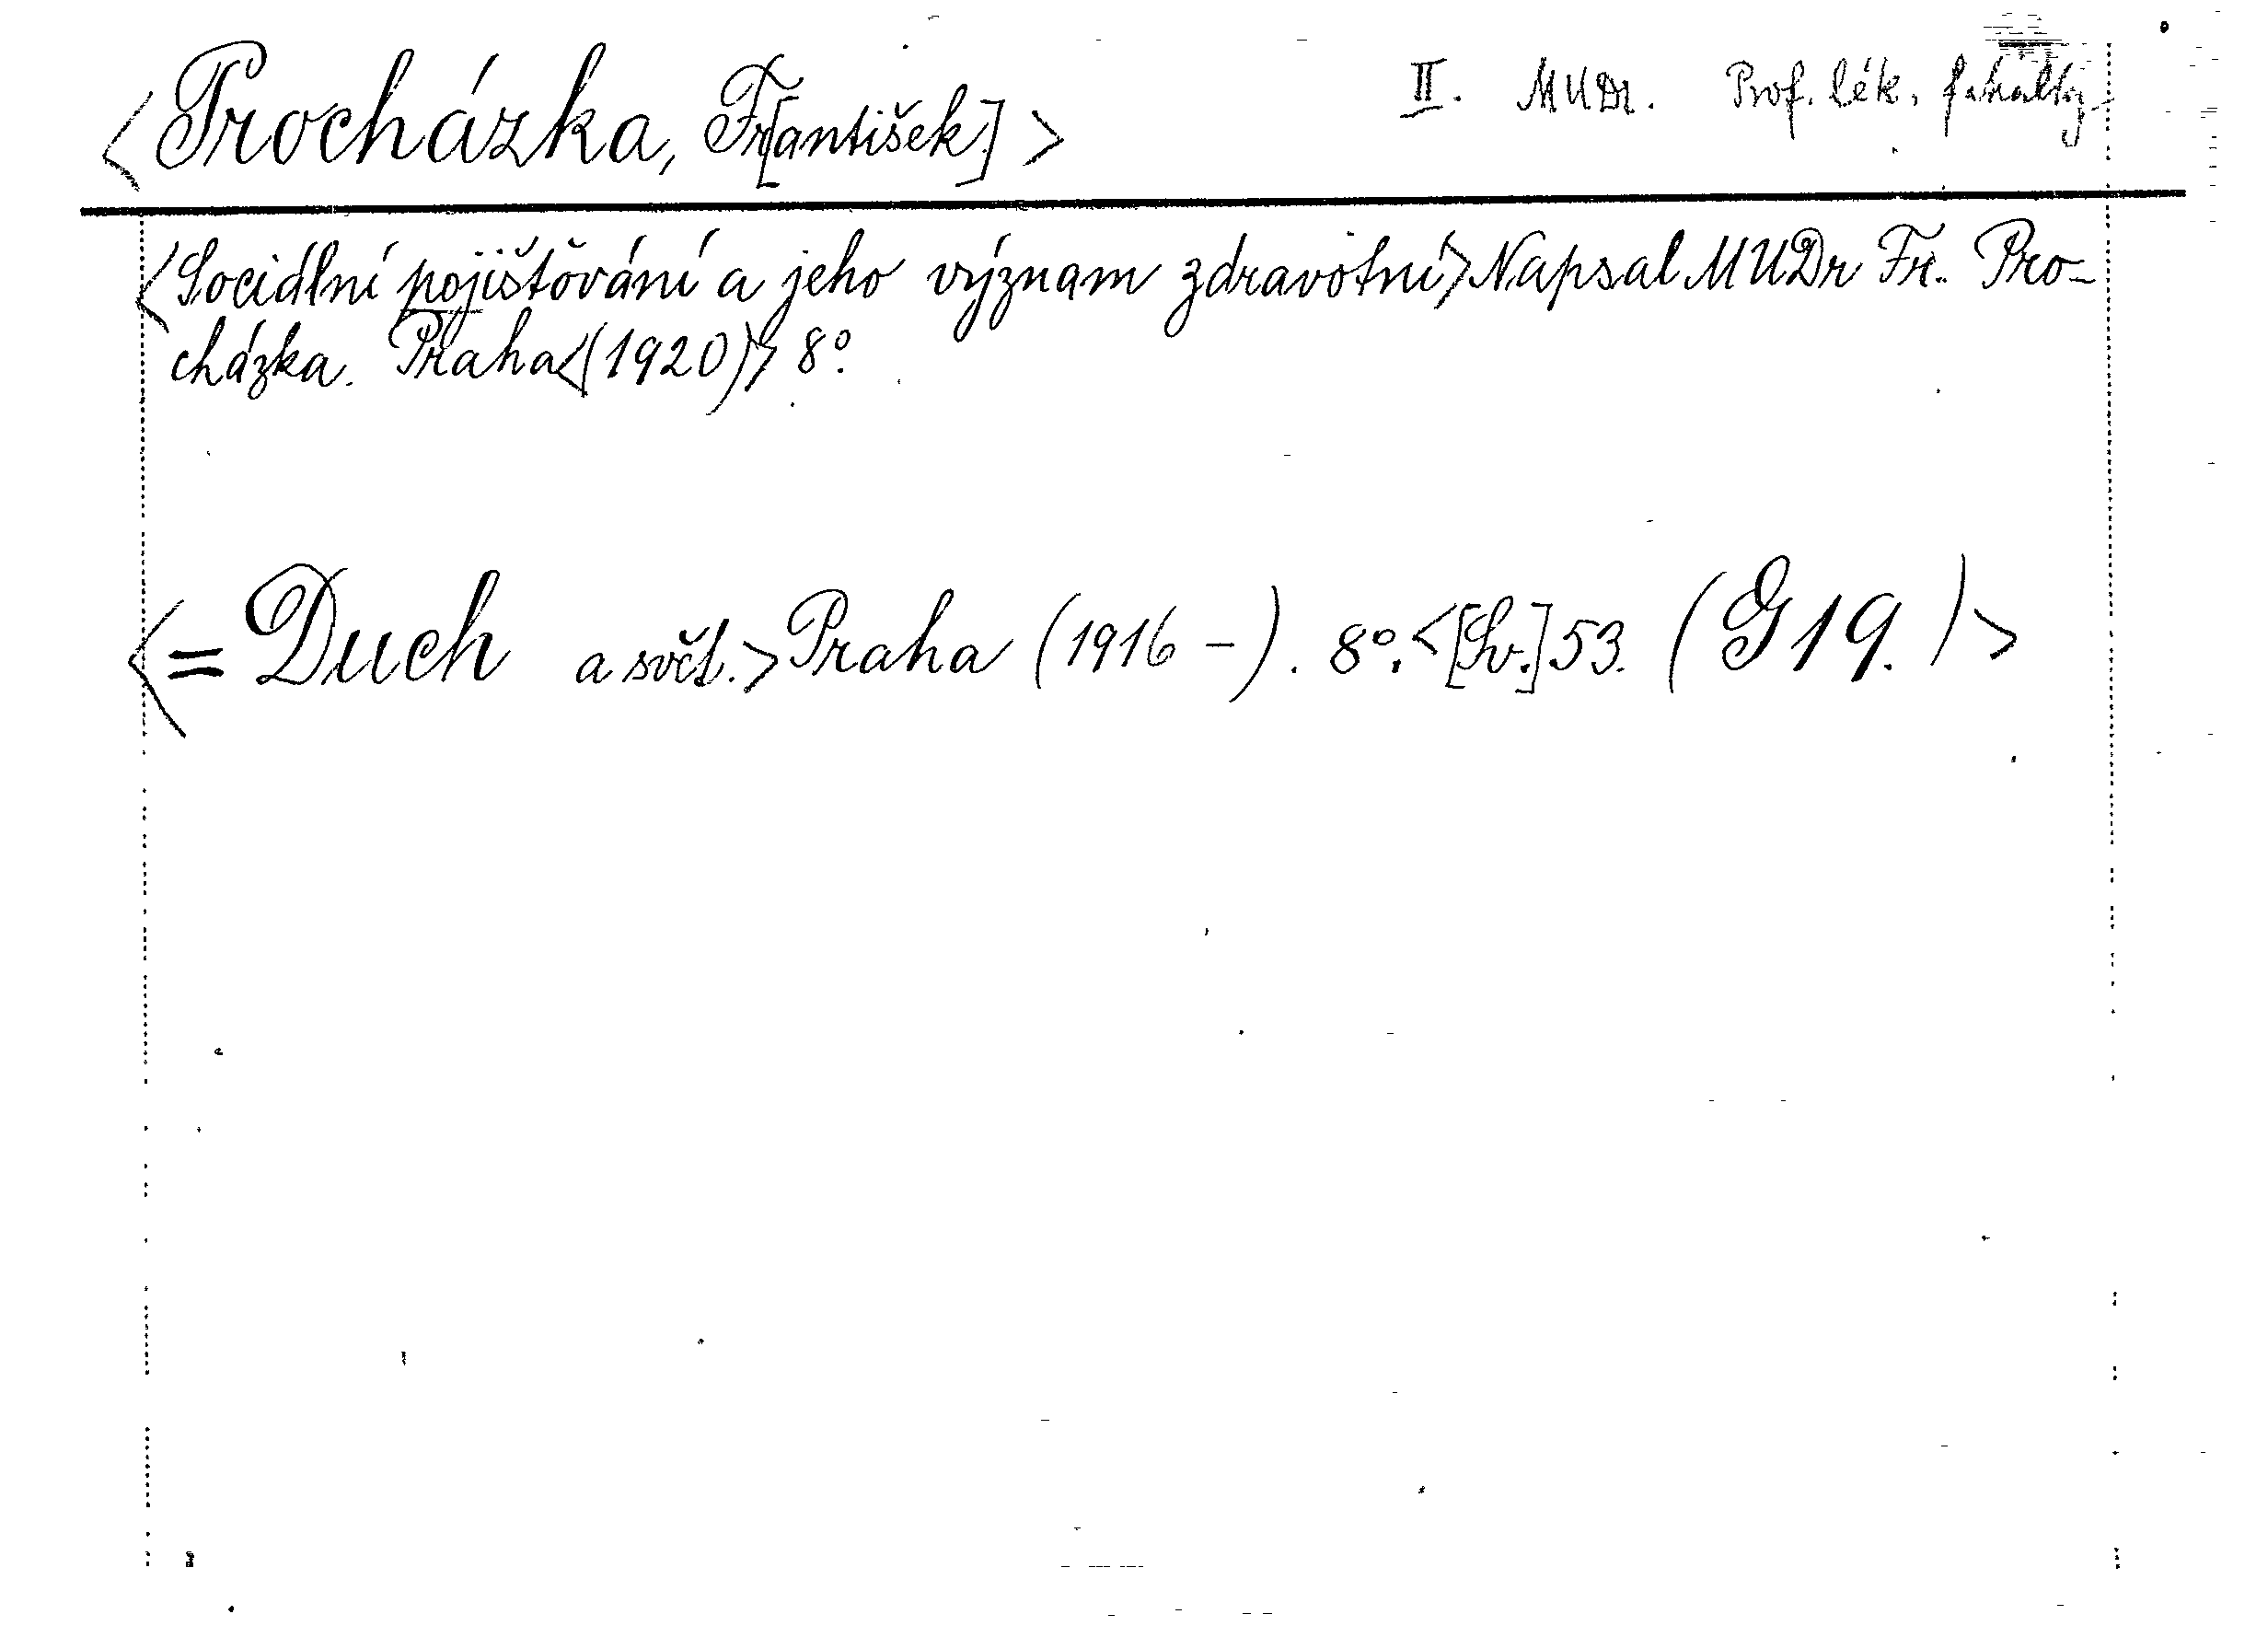 <Procházka, Fr[antišek]> II. MUDr. Prof. lék. fakulty
<Sociální pojišťování a jeho význam zdravotní> Napsal MUDr Fr. Pro-
cházka. Praha <(1920)> 8°.
<= Duch a svět.> Praha (1916 – ). 8°. <[Sv.] 53. (G 19.)>